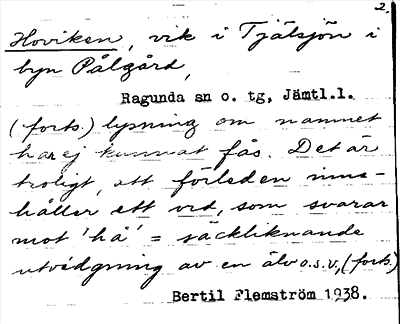 2.
Hoviken, vik i Tjälsjön i
byn Pålgård,
Ragunda sn o. tg, Jämtl.l.
(forts.) lysning om namnet
har ej kunnat fås. Det är
troligt, att förleden inne-
håller ett ord, som svarar
mot 'hå' = säckliknande
utvidgning av en älv o.s.v., (forts.)
Bertil Flemström 1938.